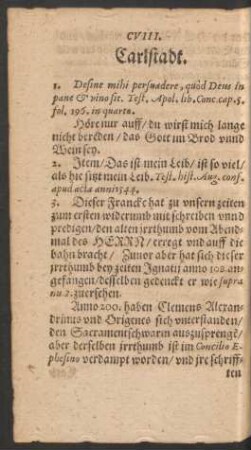 CVIII.
Carlstadt.
1. Desine mihi persuadere, quòd Deus in
pane & vino sit. Test. Apol. lib. Conc. cap. 5.
fol. 196. in quarto.
Höre nur auff/ du wirst mich lange
nicht bereden/ das Gott im Brod vnnd
Wein sey.
2. Item/ Das ist mein Leib/ ist so viel/
als hie sitzt mein Leib. Test. hist. Aug. conf.
apud acta anni 544.
3. Dieser Francke hat zu vnsern zeiten
zum ersten widerumb mit schreiben vnnd
predigen/ den alten irrthumb vom Abend-
mal des HERRN/ erregt vnd auff die
bahn bracht/ Zuuor aber hat sich dieser
irrthumb bey zeiten Ignatij anno 102. an-
gefangen/ desselben gedenckt er wie supra
nu. 2. zuersehen.
Anno 200. haben Clemens Alexan-
drinus vnd Origenes sich vnterstanden/
den Sacramentschwarm auszusprenge/
aber derselben irrthumb ist im Concilio E-
phesino verdampt worden/ vnd jre schriff-
ten